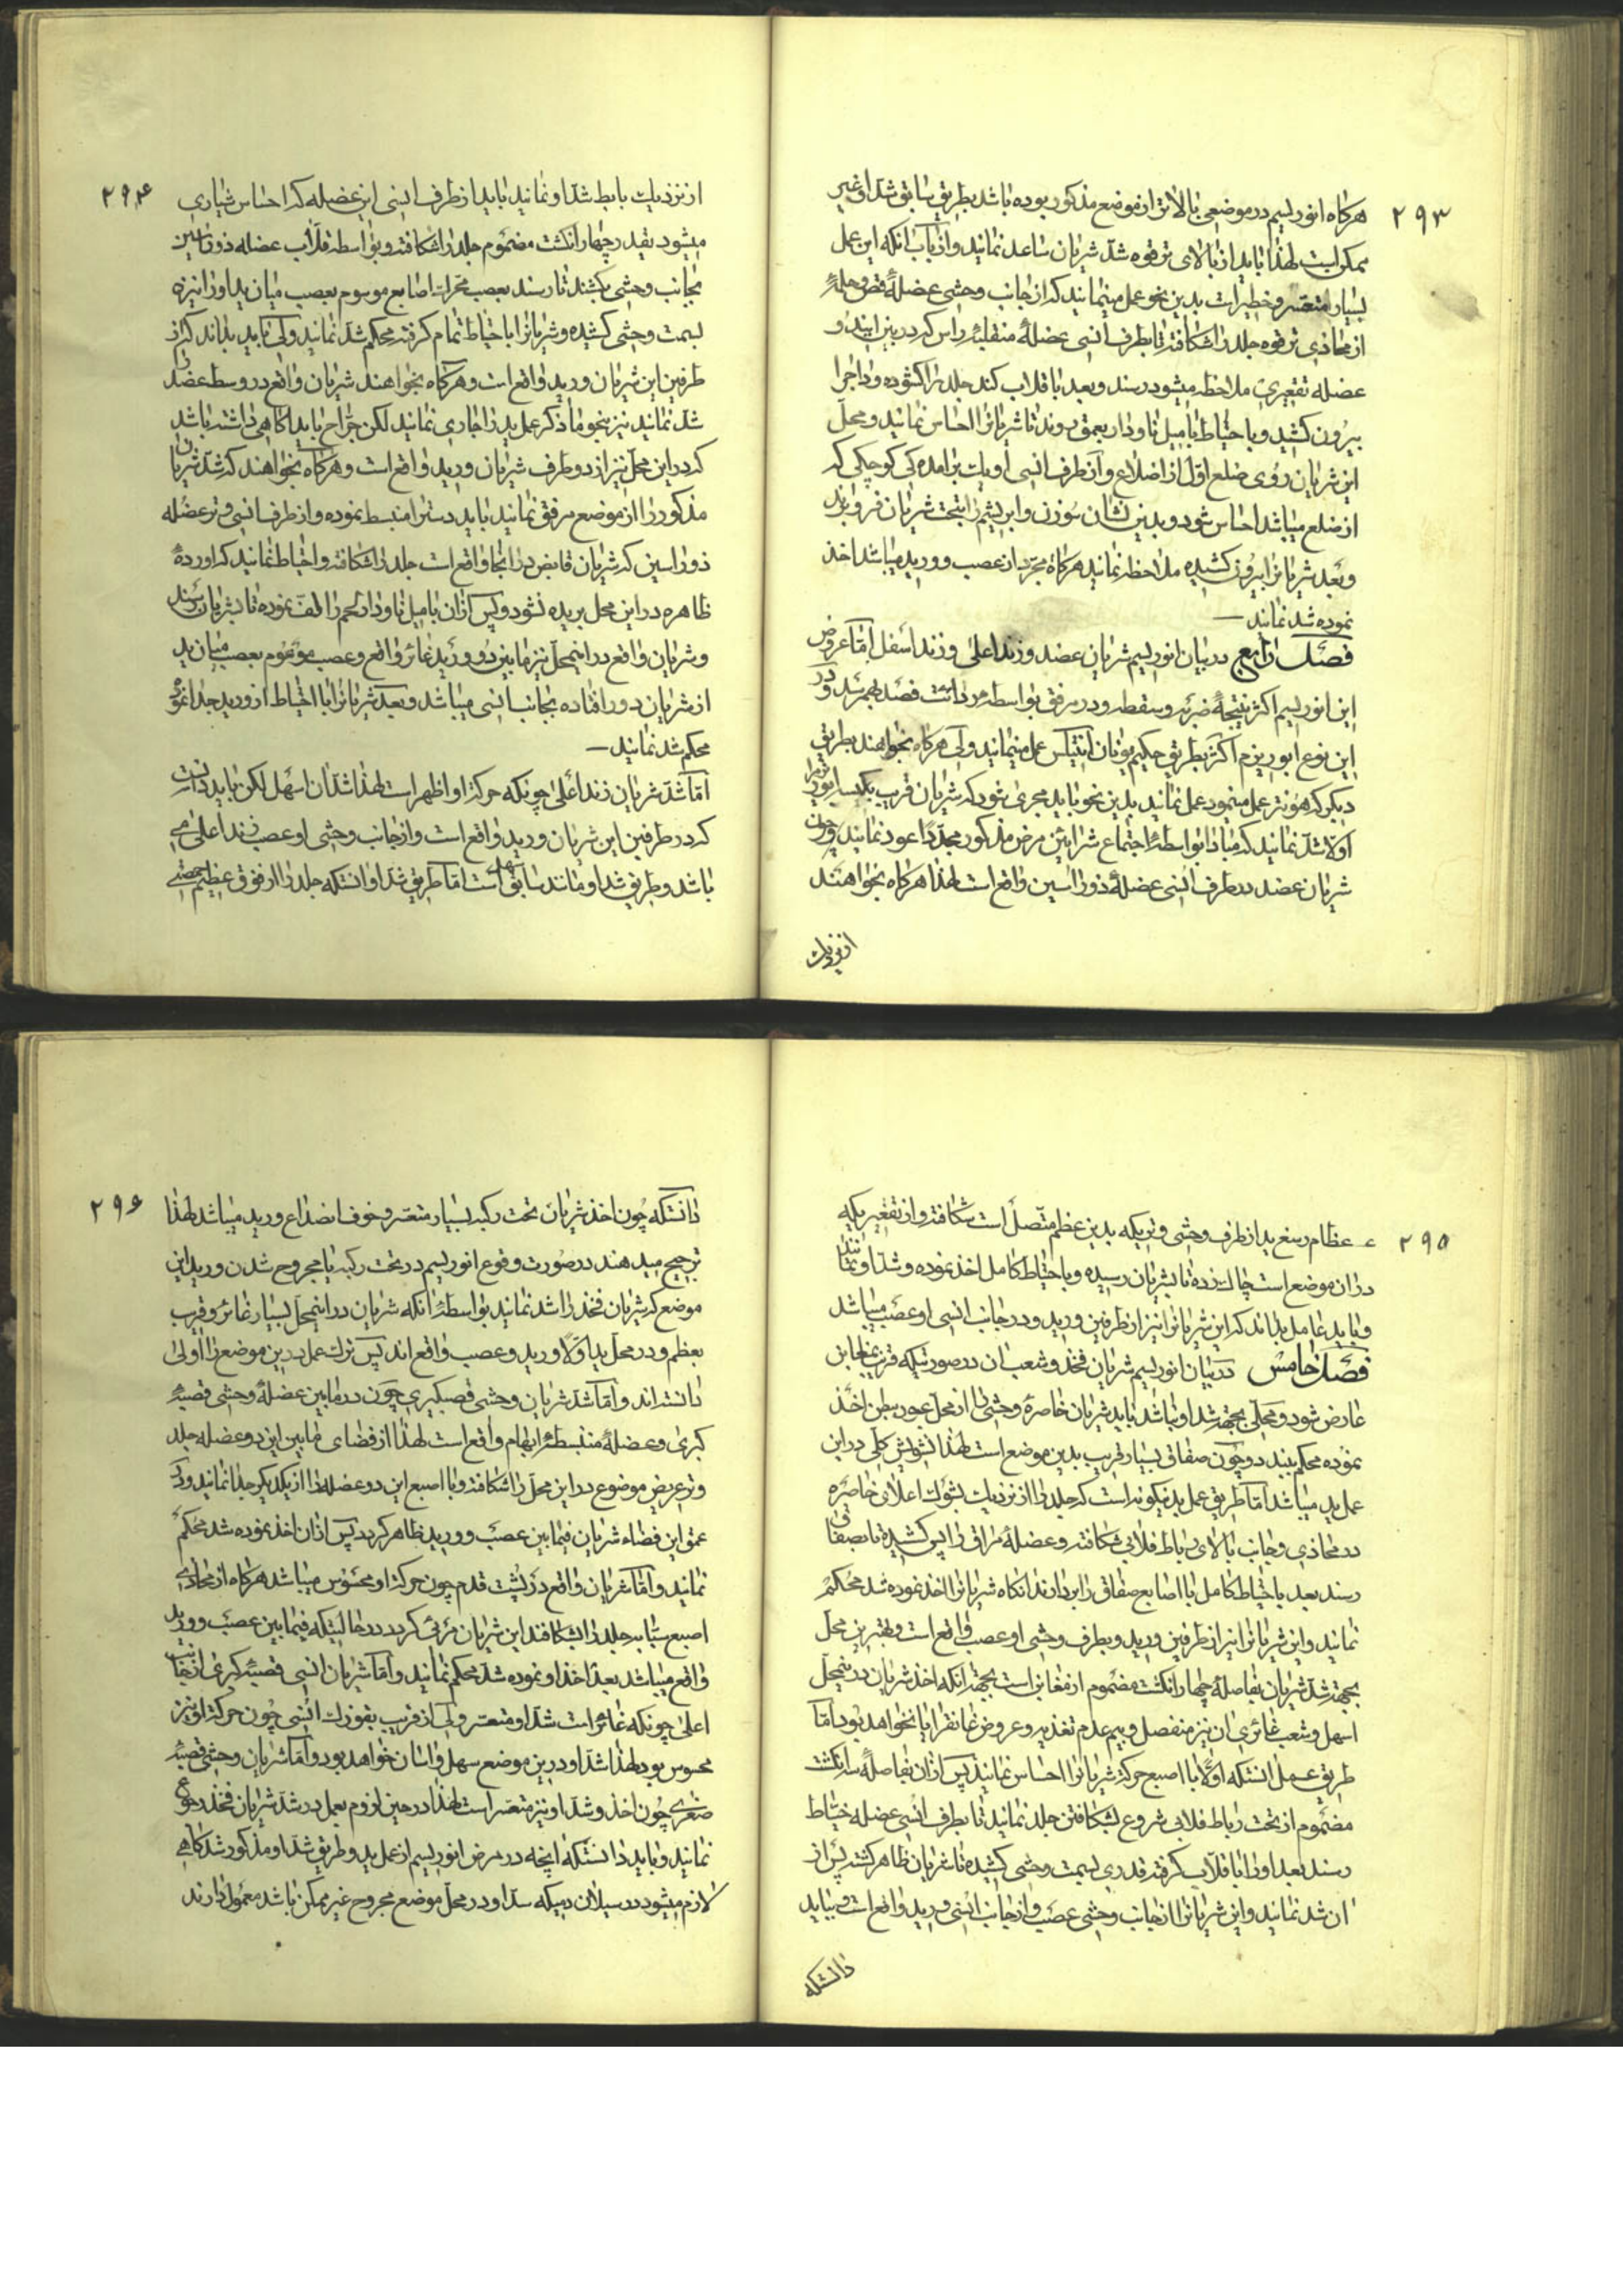 ۲۹۳
هرکاه انوریسم در موضعی بالاتر از موضع مذکور بوده باشد بطریق سابق شد او غیر
ممکن است لهذا باید از بالای ترقوه شد شریان ساعد نمایند و از باب انکه این عمل
بسیار متعسر و خطیر است بدین نحو عمل مینمایند که از جانب وحشی عضلهٔ قص و حلمهٔ
از محاذی ترقوه جلد را شکافته تا بطرف انسی عضلهٔ منقلبهٔ راس که در بین ایندو
عضله تقعیری ملاحظه میشود رسند و بعد با قلاب کند جلد را کشوده و داجرا
بیرون کشید و با حتیاط با میل ناودار بعمق روند تا شریانرا احساس نمایند و محل
این شریان روی ضلع اول از اضلاع و آن طرف انسی او یک برامده کی کوچکی که
از ضلع میباشد احساس شود و بدین نشان سوزن و ابریشم را بتحت شریان فرو برند
و بعد شریانرا بیرون کشیده ملاحظه نمایند هرکاه مجرد از عصب و ورید میباشد اخذ
نموده شد نمایند
فصل رابع در بیان انوریسم شریان عضد و زند اعلی و زند اسفل اما عروض
این انوریسم اکثر نتیجهٔ ضربه و سقطه و در مرفق بواسطه فصد بهم رسد و در
این نوع ابوریزم اکثر بطریق حکیم یونان انتیلس عمل مینمایند ولی هرکاه بخواهند بطریق
دیکر که هونتر عمل مینمود عمل نمایند بدین نحو باید مجری شود که شریان قریب بکیسه انوریسم را
اولا شد نمایند که مبادا بواسطهٔ اجتماع شرایین مرض مذکور مجددا عود نمایند و چون
شریان عضد در طرف انسی عضلهٔ ذوراسین واقع است لهذا هرکاه بخواهند
از نزدیک
۲۹۴
از نزدیک بابط شد او نمایند باید از طرف انسی این عضله که احساس شیاری
میشود بقدر چهار انکشت مضموم جلد را شکافته و بواسطه قلاب عضله ذوراسین
بجانب وحشی بکشند تا رسند بعصب محرک اصابع موسوم بعصب میان ید او را نیز
بسمت وحشی کشیده و شریانرا با حتیاط تمام کرفته محکم شد نمایند ولی باید بداند که از
طرفین این شریان ورید واقع است و هرکاه بخواهند شریان واقع در وسط عضد را
شد نمایند نیز بنحو ما ذکر عمل ید را جاری نمایند لکن جراح باید اکاهی داشته باشد
که در این محل نیز از دو طرف شریان ورید واقع است و هرکاه بخواهند که شد شریان
مذکور را از موضع مرفق نمایند باید دستر امنبسط نموده و از طرف انسی وتر عضله
ذوراسین که شریان قابض در انجا واقع است جلد را شکافته و احتیاط نمایند که اوردهٔ
ظاهره در این محل بریده نشود و پس از ان با میل ناودار لحم را نموده تا بشریان رسند
و شریان واقع در اینمحل نیز مابین دو ورید غائر واقع و عصب موسوم بعصب میان ید
از شریان دور افتاده بجانب انسی میباشد و بعد شریانرا با احتیاط از ورید جدا نموده
محکم شد نمایند
اما شد شریان زند اعلی چونکه حرکة او اظهر است لهذا شد ان اسهل لکن باید دانست
که در طرفین این شریان ورید واقع است و از جانب وحشی او عصب زند اعلی می
باشد و طریق شد او مانند سابق سهل است اما طریق شد او انستکه جلد را از فوق عظیم حمصی
۲۹۵
عظام رسغ ید از طرف وحشی وتریکه بدین عظم متصل است شکافته و از تقعیریکه
در ان موضع است چاک زده تا بشریان رسیده و با حتیاط کامل اخذ نموده و شد او نمایند
و باید عامل بداند که این شریانرا نیز از طرفین ورید و در جانب انسی او عصب میباشد
فصل خامس در بیان انوریسم شریان فخذ و شعب ان در صورتیکه قریب بمغابن
عارض شود و محلی بجهة شد او نباشد باید شریان خاصرهٔ وحشی را از محل عبور ببطن اخذ
نموده محکم ببندد و چون صفاق بسیار قریب بدین موضع است لهذا تشویش کلی در این
عمل ید میباشد اما طریق عمل بدینکونه است که جلد را از نزدیک بشوک اعلای خاصره
در محاذی و جانب بالای رباط فلابی شکافته و عضلهٔ مراق را پس کشیده تا بصفاق
رسند بعد با حتیاط کامل با اصابع صفاق را بردارند انکاه شریانرا اخذ نموده شد محکم
نمایند و این شریانرا نیز از طرفین ورید و بطرف وحشی او عصب واقع است و بهترین محل
بجهة شد شریان بفاصلهٔ چهار انکشت مضموم از مغابن است بجهة انکه اخذ شریان در اینمحل
اسهل و شعب غائری ان نیز منفصل و بیم عدم تغذیه و عروض غانقرایا نخواهد بود اما
طریق عمل انستکه اولا با اصبع حرکة شریانرا احساس نمایند پس از ان بفاصلهٔ سه انکشت
مضموم از تحت رباط فلابی شروع بشکافتن جلد نمایند تا بطرف انسی عضله خیاط
رسند بعد او را با قلاب کرفته قدری بسمت وحشی کشیده تا شریان ظاهر کشته پس از
ان شد نمایند و این شریانرا از جانب وحشی عصب و از جانب انسی ورید واقع است و بباید
دانستکه
۲۹۶
دانستکه چون اخذ شریان تحت رکبه بسیار متعسر و خوف انصداع ورید میباشد لهذا
ترجیح میدهند در صورت وقوع انوریسم در تحت رکبه یا مجروح شدن ورید این
موضع که شریان فخذ را شد نمایند بواسطهٔ انکه شریان در اینمحل بسیار غائر و قریب
بعظم و در محل ید اولا ورید و عصب واقع اند پس ترک عمل در این موضع را اولی
دانسته اند و اما شد شریان وحشی قصبکبری چون در مابین عضلهٔ وحشی قصبهٔ
کبری و عضلهٔ منبسطهٔ ابهام واقع است لهذا از فضای مابین این دو عضله جلد
و وتر عریض موضوع در این محل را شکافته و با اصبع این دو عضله را از یکدیکر جدا نمایند و در
عمق این فضاء شریان فیمابین عصب و ورید ظاهر کردد پس از ان اخذ نموده شد محکم
نمایند و اما شریان واقع در پشت قدم چون حرکة او محسوس میباشد هرکاه از محاذی
اصبع سبابه جلد را بشکافند این شریان مرئی کردد در حالتیکه فیمابین عصب و ورید
واقع میباشد بعد اخذ او نموده شد محکم نمایند و اما شریان انسی قصبهٔ کبری از جانب
اعلی چونکه غائر است شد او متعسر ولی از قریب بقوزک انسی چون حرکة او نیز
محسوس بود لهذا شد او در این موضع سهل و اسان خواهد بود و اما شریان وحشی قصبهٔ
صغری چون اخذ و شد او نیز متعسر است لهذا در حین لزوم بعمل ید رشد شریان فخذ رجوع
نمایند و باید دانستکه انچه در مرض انوریسم از عمل ید و طریق شد او مذکور شد کاهی
لازم میشود در سیلان دمیکه سد او در محل موضع مجروح غیر ممکن باشد معمول دارند